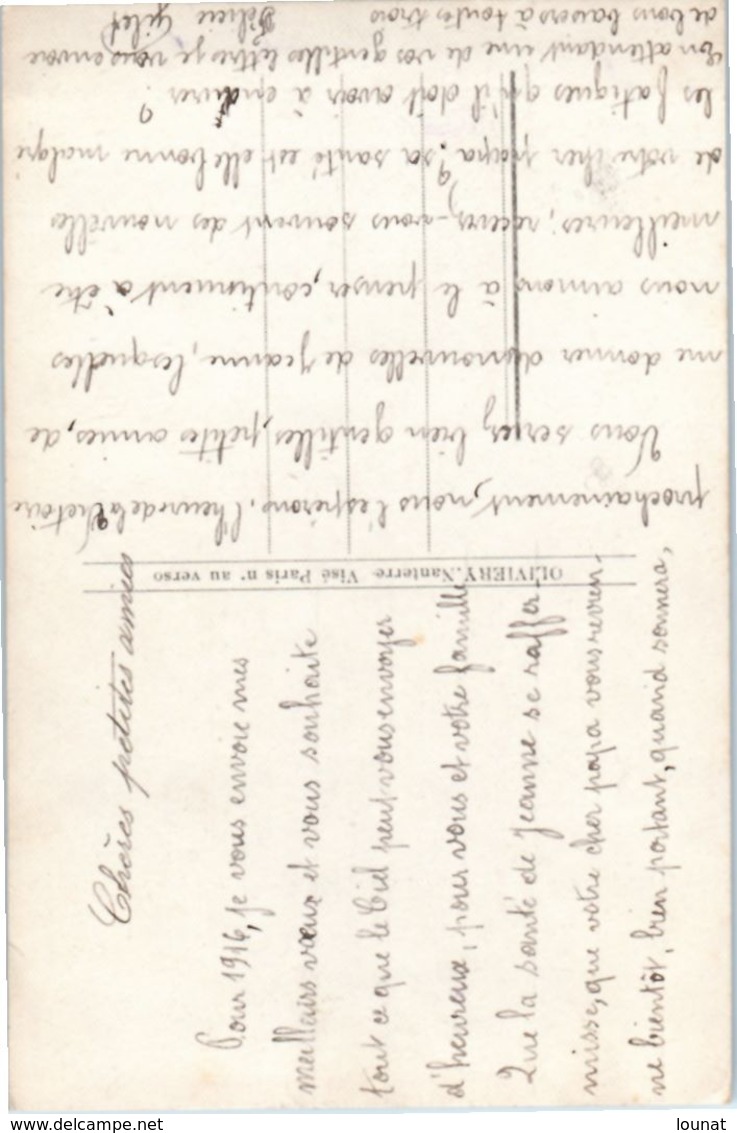 Chères petites amies
Pour 1916, je vous envoie mes
meilleurs vœux et vous souhaite
tout ce que le Ciel peut vous envoyer
d'heureux, pour vous et votre famille
Que la santé de Jeanne se raffer-
misse, que votre cher papa vous revien-
ne bientôt, bien portant, quand sonnera,
prochainement, nous l'espérons, l'heure de la Victoire
Vous seriez bien gentilles, petites amies, de
me donner des nouvelles de Jeanne, lesquelles
nous aimons à le penser, continuent à être
meilleures; recevez-vous souvent des nouvelles
de votre cher papa, sa santé est elle bonne malgré
les fatigues qu'il doit avoir à endurer ?
En attendant une de vos gentilles lettres je vous envoie
de bons baisers à toutes trois
Félicie Gilet
OLIVIERY. Nanterre Visé Paris n° au verso
lounat